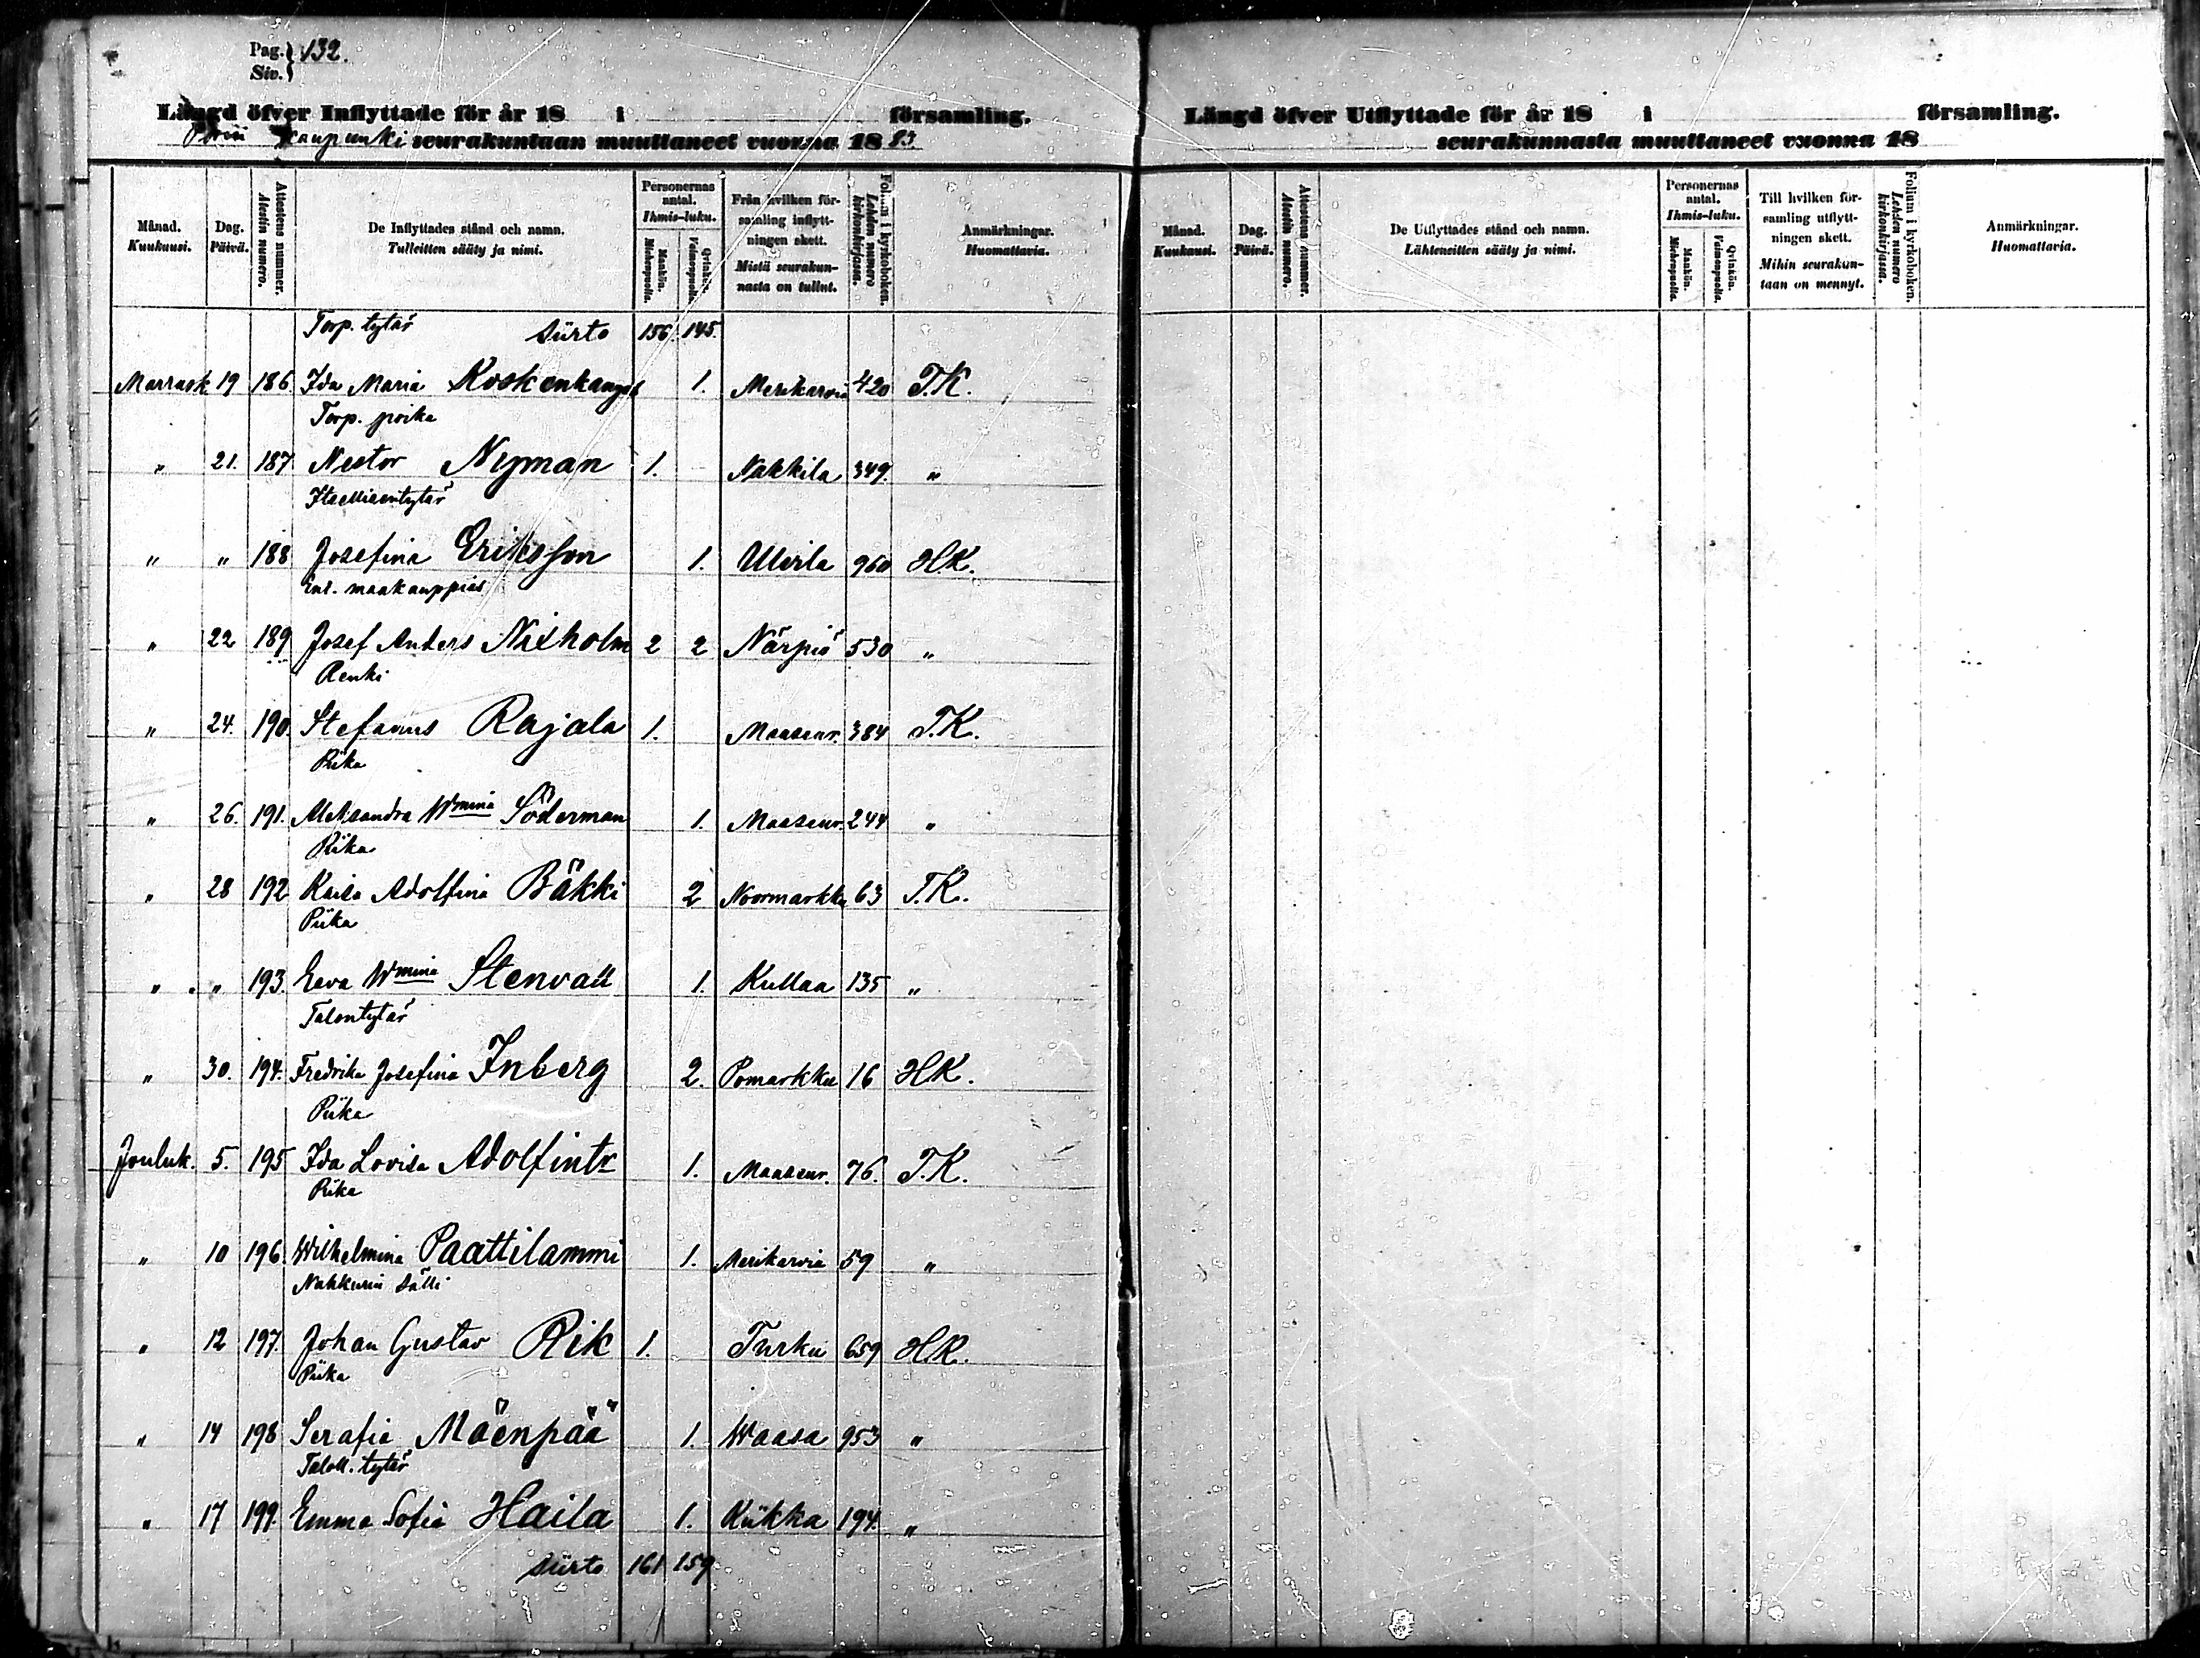 Pag. 132.
Siv.
Längd öfver Inflyttade för år 18 i församling.
Porin kaupunki seurakuntaan muuttaneet vuonna 1883
Månad. Kuukausi. Dag. Päivä. Attestens nummer. Atestin numero. De Inflyttades stånd och namn. Tulleitten sääty ja nimi. Personernas antal. Ihmis-luku. Mankön. Miehenpuolia. Qvinkön. Vaimonpuolia. Från hvilken församling inflyttningen skett. Mistä seurakunnasta on tullut. Folium i kyrkoboken. Lehden numero kirkonkirjassa. Anmärkningar. Huomattavia.
Torp. tytär Siirto 156. 145.
Marrask. 19 186. Ida Maria Koskenkangas 1. Merikarvia 420 T.K.
Torp. poika
" 21. 187 Nestor Nyman 1. Nakkila 349. "
Itsellisentytär
" " 188 Josefina Eriksson 1. Ulvila 960 H.K.
Ent. maakauppias
" 22 189 Josef Anders Nixholm 2 2 Närpiö 530 "
Renki
" 24. 190. Stefanus Rajala 1. Maaseur. 384 T.K.
Piika
" 26. 191. Aleksandra Wmina Söderman 1. Maaseur. 244 "
Piika
" 28 192 Kaisa Adolfina Bäkki 2 Noormarkku 63 T.K.
Piika
" " 193. Eeva Wmina Stenvall 1. Kullaa 135 "
Talontytär
" 30. 194. Fredrika Josefina Inberg 2. Pomarkku 16 H.K.
Piika
Jouluk. 5. 195 Ida Lovisa Adolfintr 1. Maaseur. 76. T.K.
Piika
" 10 196. Wilhelmina Paattilammi 1. Merikarvia 59 "
Nahkurin sälli
" 12 197. Johan Gustav Rik 1. Turku 659 H.K.
Piika
" 14 198 Serafia Mäenpää 1. Waasa 953 "
Taloll. tytär
" 17 199. Emma Sofia Haila 1. Kiikka 194. "
Siirto 161 159
Längd öfver Utflyttade för år 18 i församling.
seurakunnasta muuttaneet vuonna 18
Månad. Kuukausi. Dag. Päivä. Attestens nummer. Atestin numero. De Utflyttades stånd och namn. Lähteneitten sääty ja nimi. Personernas antal. Ihmis-luku. Mankön. Miehenpuolia. Qvinkön. Vaimonpuolia. Till hvilken församling utflyttningen skett. Mihin seurakuntaan on mennyt. Folium i kyrkoboken. Lehden numero kirkonkirjassa. Anmärkningar. Huomattavia.